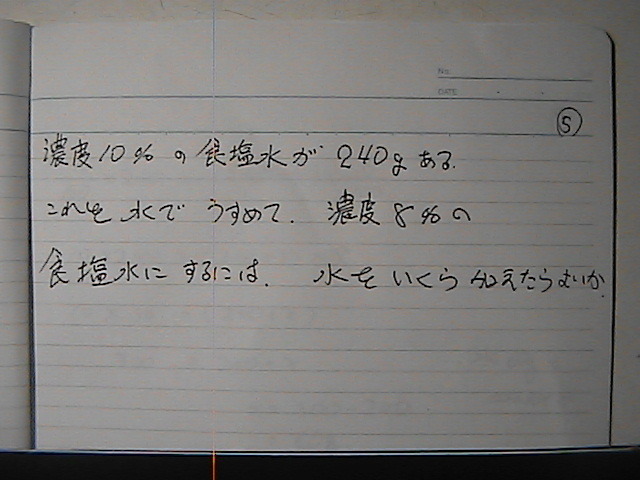 No.
DATE
⑤
濃度10%の食塩水が240gある.
これを水でうすめて.濃度8%の
食塩水にするには.水をいくら加えたらよいか.